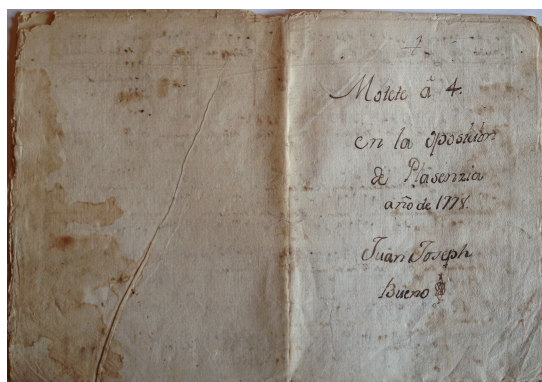 Motete â 4.
en la oposicion
de Plasenzia
año de 1778.
Juan Joseph
Bueno